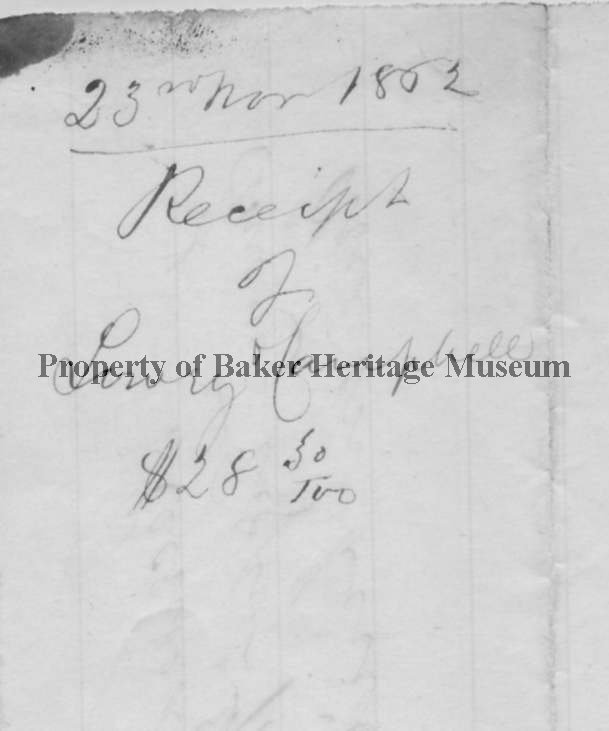 23rd Nov 1852
Receipt
of
Lowry Campbell
Property of Baker Heritage Museum
$28 50/100